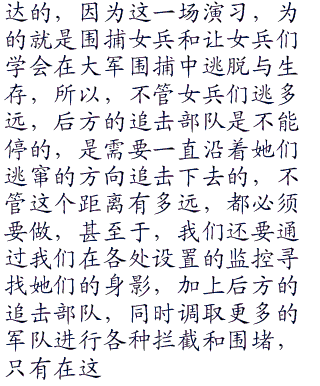 达的，因为这一场演习，为
的就是围捕女兵和让女兵们
学会在大军围捕中逃脱与生
存，所以，不管女兵们逃多
远，后方的追击部队是不能
停的，是需要一直沿着她们
逃窜的方向追击下去的，不
管这个距离有多远，都必须
要做，甚至于，我们还要通
过我们在各处设置的监控寻
找她们的身影，加上后方的
追击部队，同时调取更多的
军队进行各种拦截和围堵，
只有在这